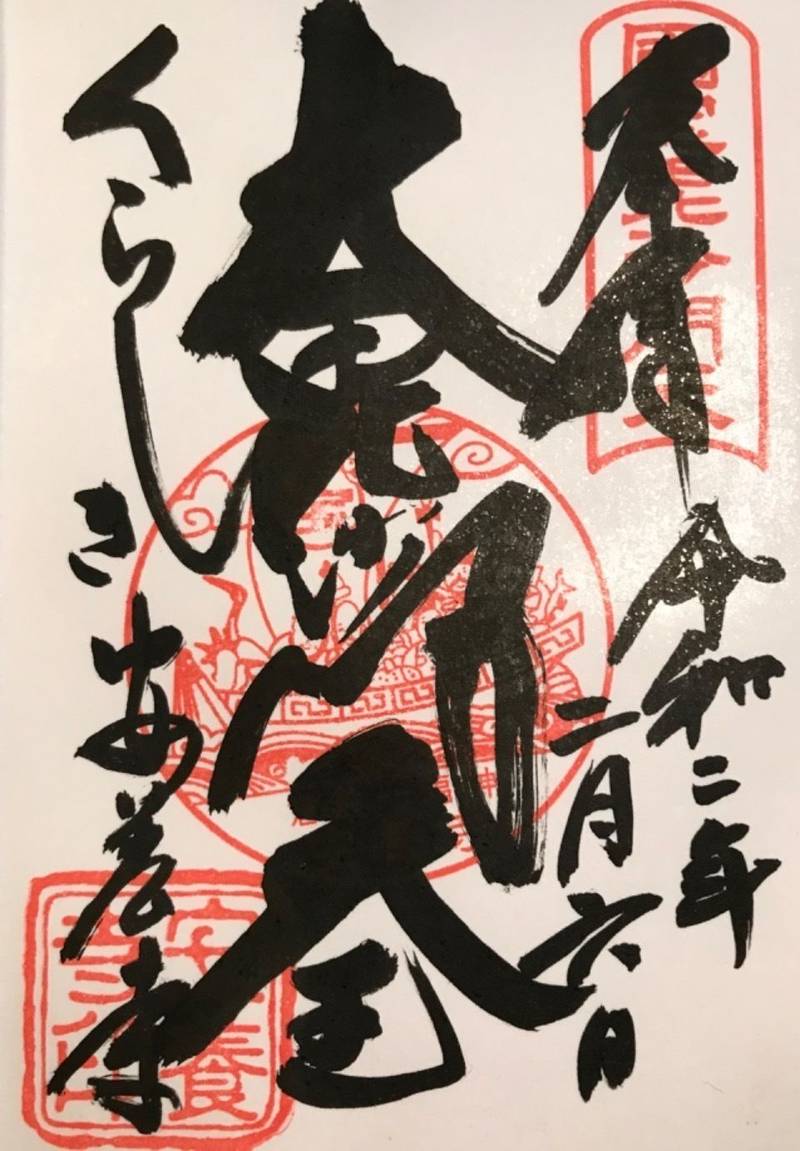 奉拝
令和二年
二月六日
大毘沙門天王
くらしき 安養寺